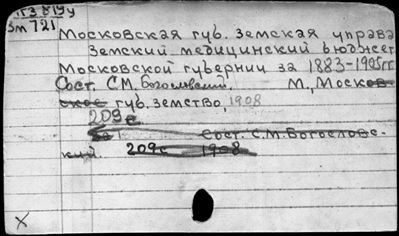 П3 819у
Зт 721
Московская губ. Земская управа
Земский медицинский бюджет
Московской губернии за 1883-1905 гг.
Сост. С.М. Богословский. М., Москов-
ское губ. земство, 1908
209 с
Сост. С.М. Богословс-
кий. 209 с 1908
X